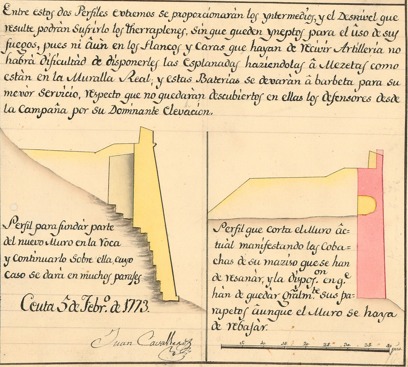 Entre estos dos Perfiles extremos se proporcionarán los yntermedios, y el Desnivel que
resulte podrán Sufrirlo los therraplenes, sin que queden yneptos para el úso de sus
fuegos, pues ni áun en los flancos y Caras que hayan de recivir Artilleria no
habrá Dificultad de disponerles las Esplanadas haziendolas â Mezetas como
están en la Muralla Real, y estas Baterias se devarán â barbeta para su
mevor Servicio, respecto que no quedarán descubiertos en ellas los Defensores desde
la Campaña por su Dominante Elevación.
Perfil para fundar parte
del nuevo Muro en la Roca
y Continuarlo Sobre ella, cuyo
caso se dará en muchos parajes
Ceuta 5 de Febr.º de 1773.
Juan Cavallero
Perfil que corta el Muro âc-
tual manifestando las Coba-
chas de su mazizo que se han
de resanár, y la dispos.on en q.e
hán de quedar Gralm.te sus pa-
rapetos âunque el Muro se haya
de rebajar.